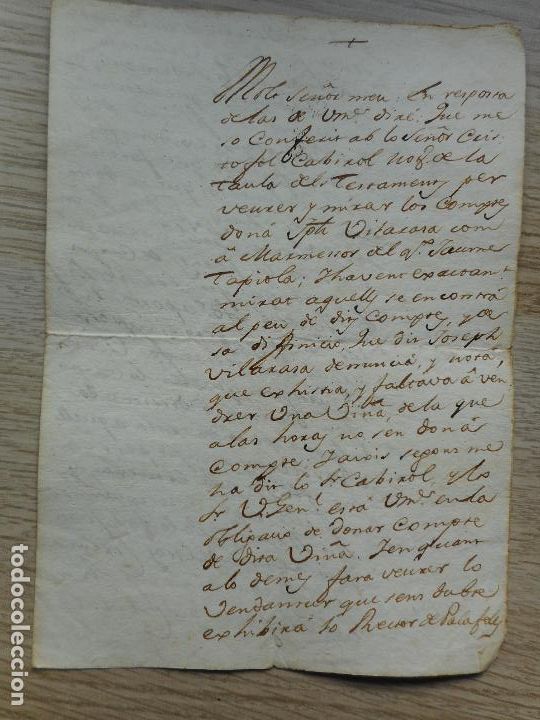 +
Molt Señor meu: En resposta
de las de Vmd. dire: Que me
so Conferit ab lo Señor Cris
tofol Cabirol Not. de la
Taula dels Testaments per
veurer y mirar los Comptes
doná Jph Vilarasa com
á Marmessor del qo. Jaume
Tapiola; Y havent exactamt.
mirat aquells se encontrá
al peu de dits Compte, y
sa diffinició, que dit Joseph
Vilarasa denunciá, y
que exhistia, y faltava á ven
drer Una Viña, de la que
alas horas no sen doná
Compte; Y axis segons me
ha dit lo Sr. Cabirol, y lo
Sr. V. Genl. está Vmd. en la
Obligació de donar Compte
de dita Viña. Y en quant
alo demes fara veurer lo
que sens dubte
exhibirá lo Rector de Palafolls
todocoleccion